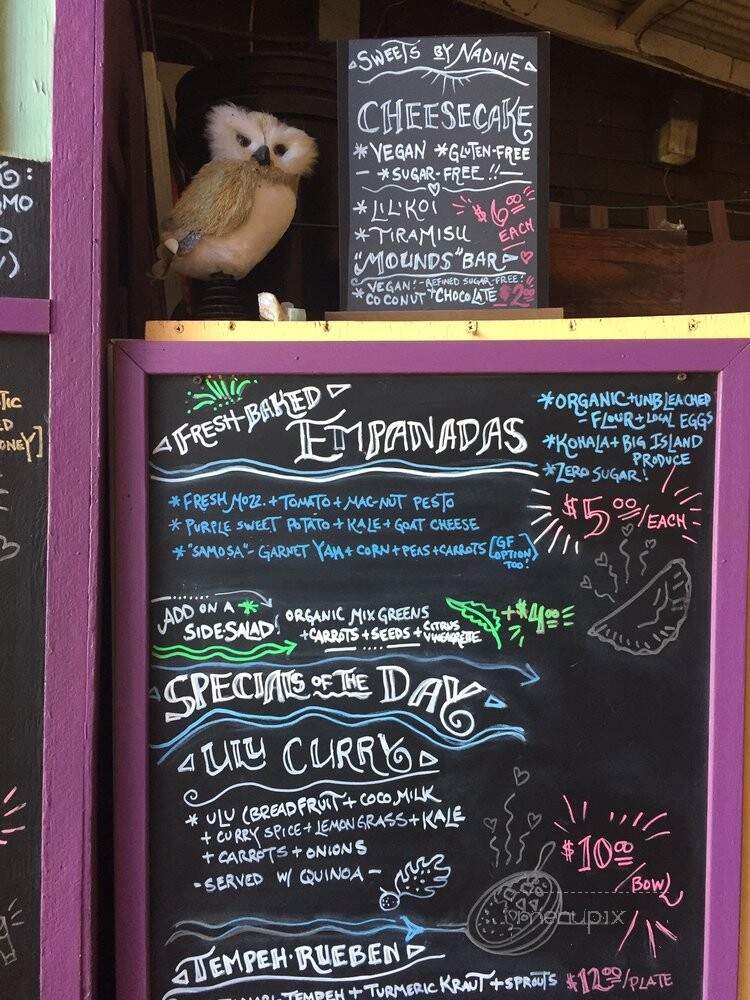 SWEETS BY NADINE
CHEESECAKE
* VEGAN * GLUTEN-FREE
- * SUGAR-FREE!! -
* LIL'KOI
* TIRAMISU
$6.00 EACH
"MOUNDS" BAR
VEGAN! - REFINED SUGAR-FREE!
* COCONUT + CHOCOLATE $2.00
FRESH-BAKED
EMPANADAS
* ORGANIC + UNBLEACHED
- FLOUR + LOCAL EGGS
* KOHALA + BIG ISLAND
PRODUCE
* ZERO SUGAR!
* FRESH MOZZ. + TOMATO + MAC-NUT PESTO
* PURPLE SWEET POTATO + KALE + GOAT CHEESE
* "SAMOSA" - GARNET YAM + CORN + PEAS + CARROTS [GF OPTION TOO!]
$5.00/EACH
ADD ON A *
SIDE-SALAD!
ORGANIC MIX GREENS
+ CARROTS + SEEDS + CITRUS VINEGARETTE
+ $4.00
SPECIALS OF THE DAY
ULU CURRY
* ULU (BREADFRUIT + COCO MILK
+ CURRY SPICE + LEMONGRASS + KALE
+ CARROTS + ONIONS
- SERVED W/ QUINOA -
$10.00/BOWL
menupix
TEMPEH-RUEBEN
TEMPEH + TURMERIC KRAUT + SPROUTS $12.00/PLATE